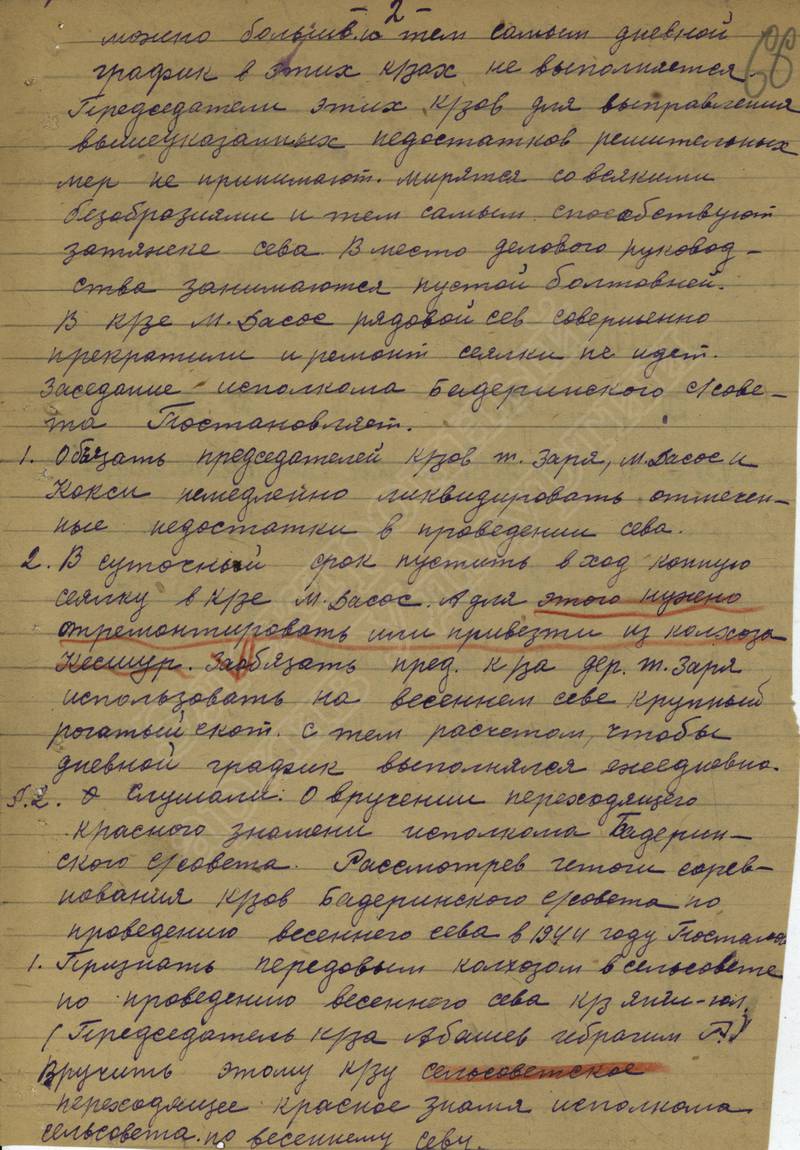 2
66
можно больше. и тем самым дневной
график в этих кзах не выполняется.
Председатели этих кзов для выправления
вышеуказанных недостатков решительных
мер не принимают. мирятся со всякими
безобразиями и тем самым способствуют
затяжке сева. Вместо делового руковод-
ства занимаются пустой болтовней.
В кзе М. Васос рядовой сев совершенно
прекратили и ремонт сеялки не идет.
Заседание исполкома Бадеринского с/сове-
та Постановляет.
1. Обязать председателей кзов т. Заря, М. Васос и
Кокси немедлейно ликвидировать отмечен-
ные недостатки в проведении сева.
2. В суточный срок пустить в ход конную
сеялку в кзе М. Васос. А для этого нужно
отремонтировать или привезти из колхоза
Кесшур. Заобязать пред. к-за дер. т. Заря
использовать на весеннем севе крупный
рогатый скот. с тем расчетом, чтобы
дневной график выполнялся ежедневно.
П.2. Слушали: О вручении переходящего
красного знамени исполкома Бадерин-
ского с/совета. Рассмотрев итоги сорев-
нования кзов Бадеринского с/совета по
проведению весеннего сева в 1944 году
1. Признать передовым колхозом в сельсовете
по проведению весеннего сева кз
(Председатель кза Абашев Ибрагим
Вручить этому кзу сельсоветское
переходящее красное знамя исполкома
сельсовета по весеннему севу.